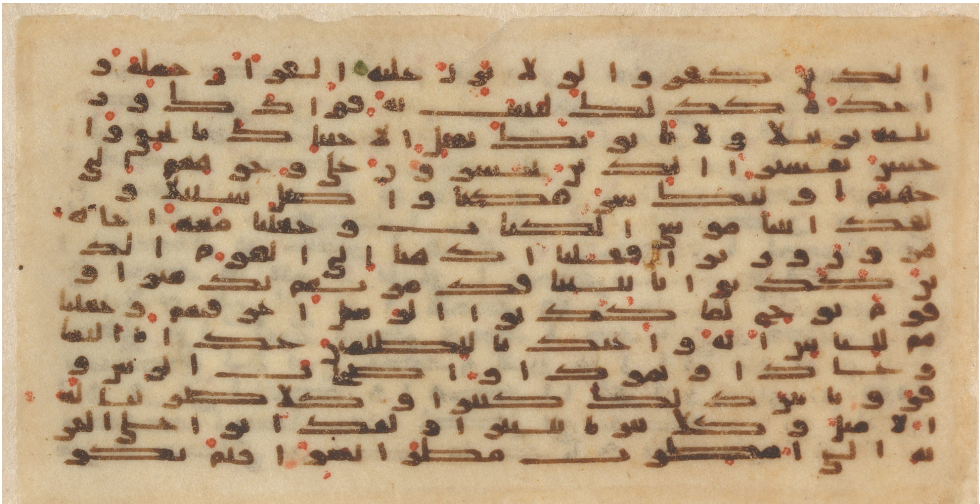 الذين كفروا لولا نزل عليه القران جملة و
احدة كذلك لنثبت به فوادك ور
تلنه ترتيلا ولا ياتونك بمثل الا جئنك بالحق وا
حسن تفسيرا الذين يحشرون على وجوههم الى
جهنم اولئك شر مكانا واضل سبيلا و
لقد اتينا موسى الكتب وجعلنا معه اخاه
هرون وزيرا فقلنا اذهبا الى القوم الذ
ين كذبوا باتنا فدمرنهم تدميرا و
قوم نوح لما كذبوا الرسل اغرقنهم وجعلنا
هم للناس اية واعتدنا للظلمين عذابا اليما
وعادا وثمودا واصحب الرس و
قرونا بين ذلك كثيرا وكلا ضربنا له
الامثل وكلا تبرنا تتبيرا ولقد اتوا على القر
ية التي امطرت مطر السوء افلم يكو